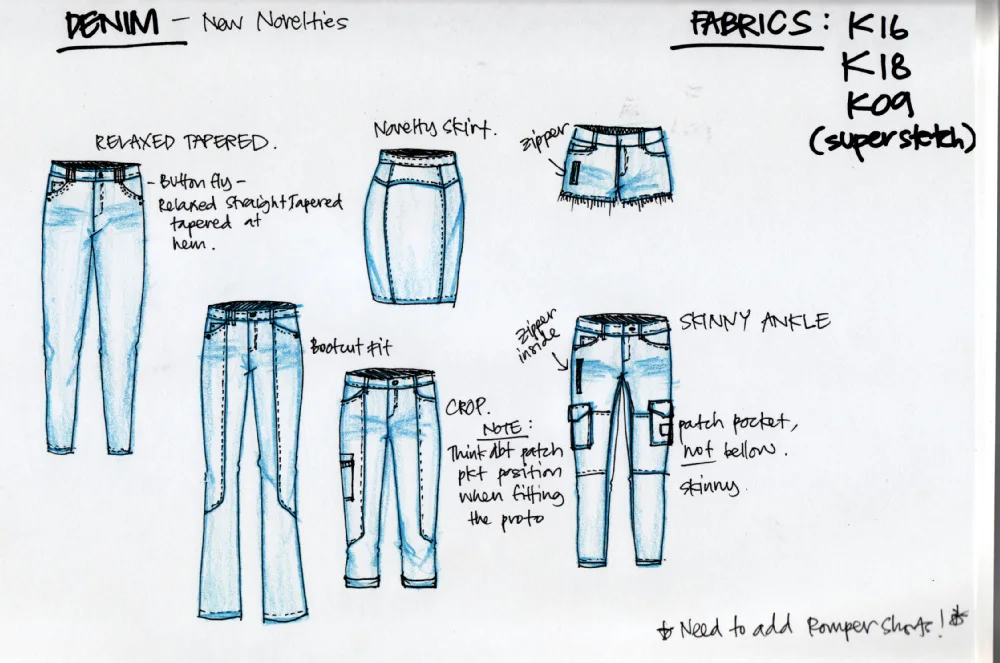 DENIM — New Novelties
FABRICS: K16
K18
K09
(super stetch)
RELAXED TAPERED.
- Button fly -
Relaxed Straight Tapered
tapered at
hem.
Novelty Skirt.
Zipper
Bootcut Fit
CROP.
NOTE:
Think abt patch
pkt position
when fitting
the proto
Zipper
inside
SKINNY ANKLE
patch pocket,
not bellow.
skinny.
* Need to add Romper Shorts! *